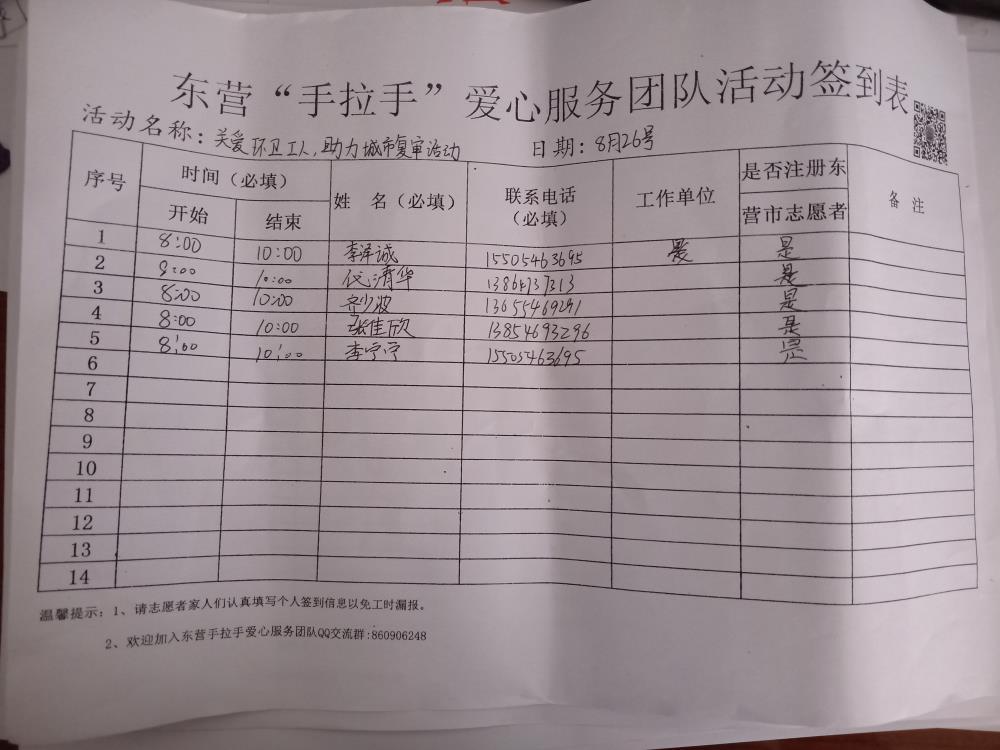 东营“手拉手”爱心服务团队活动签到表
活动名称：关爱环卫工人,助力城市复审活动 日期：8月26号
序号 时间（必填） 姓 名（必填） 联系电话（必填） 工作单位 是否注册东营市志愿者 备 注
开始 结束
1 8:00 10:00 李泽诚 15505463695 是
2 8:00 10:00 倪清华 13864737313 是
3 8:00 10:00 13655469291 是
4 8:00 10:00 张佳欣 13854693296 是
5 8:00 10:00 李宁宁 15505463695 是
6
7
8
9
10
11
12
13
14
温馨提示：1、请志愿者家人们认真填写个人签到信息以免工时漏报。
2、欢迎加入东营手拉手爱心服务团队QQ交流群:860906248